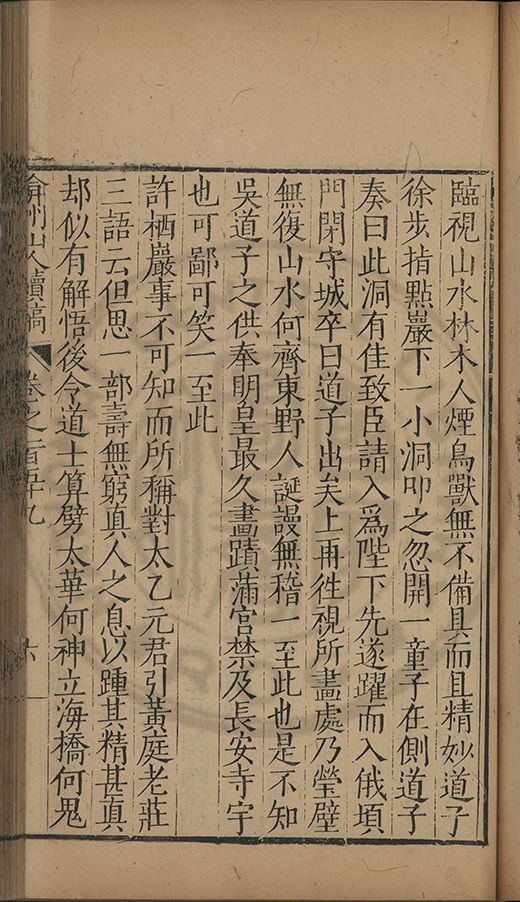 臨視山水林木人煙鳥獸無不備具而且精妙道子
徐步指點巖下一小洞叩之忽開一童子在側道子
奏曰此洞有佳致臣請入爲陛下先遂躍而入俄頃
門閉守城卒曰道子出矣上再徃視所畫處乃瑩壁
無復山水何齊東野人誕謾無稽一至此也是不知
吳道子之供奉明皇最久畫蹟滿宮禁及長安寺宇
也可鄙可笑一至此
許栖巖事不可知而所稱對太乙元君引黃庭老莊
三語云但思一部壽無窮真人之息以踵其精甚真
却似有解悟後令道士算劈太華何神立海橋何鬼
弇州山人續稿 卷之一百五十九 六